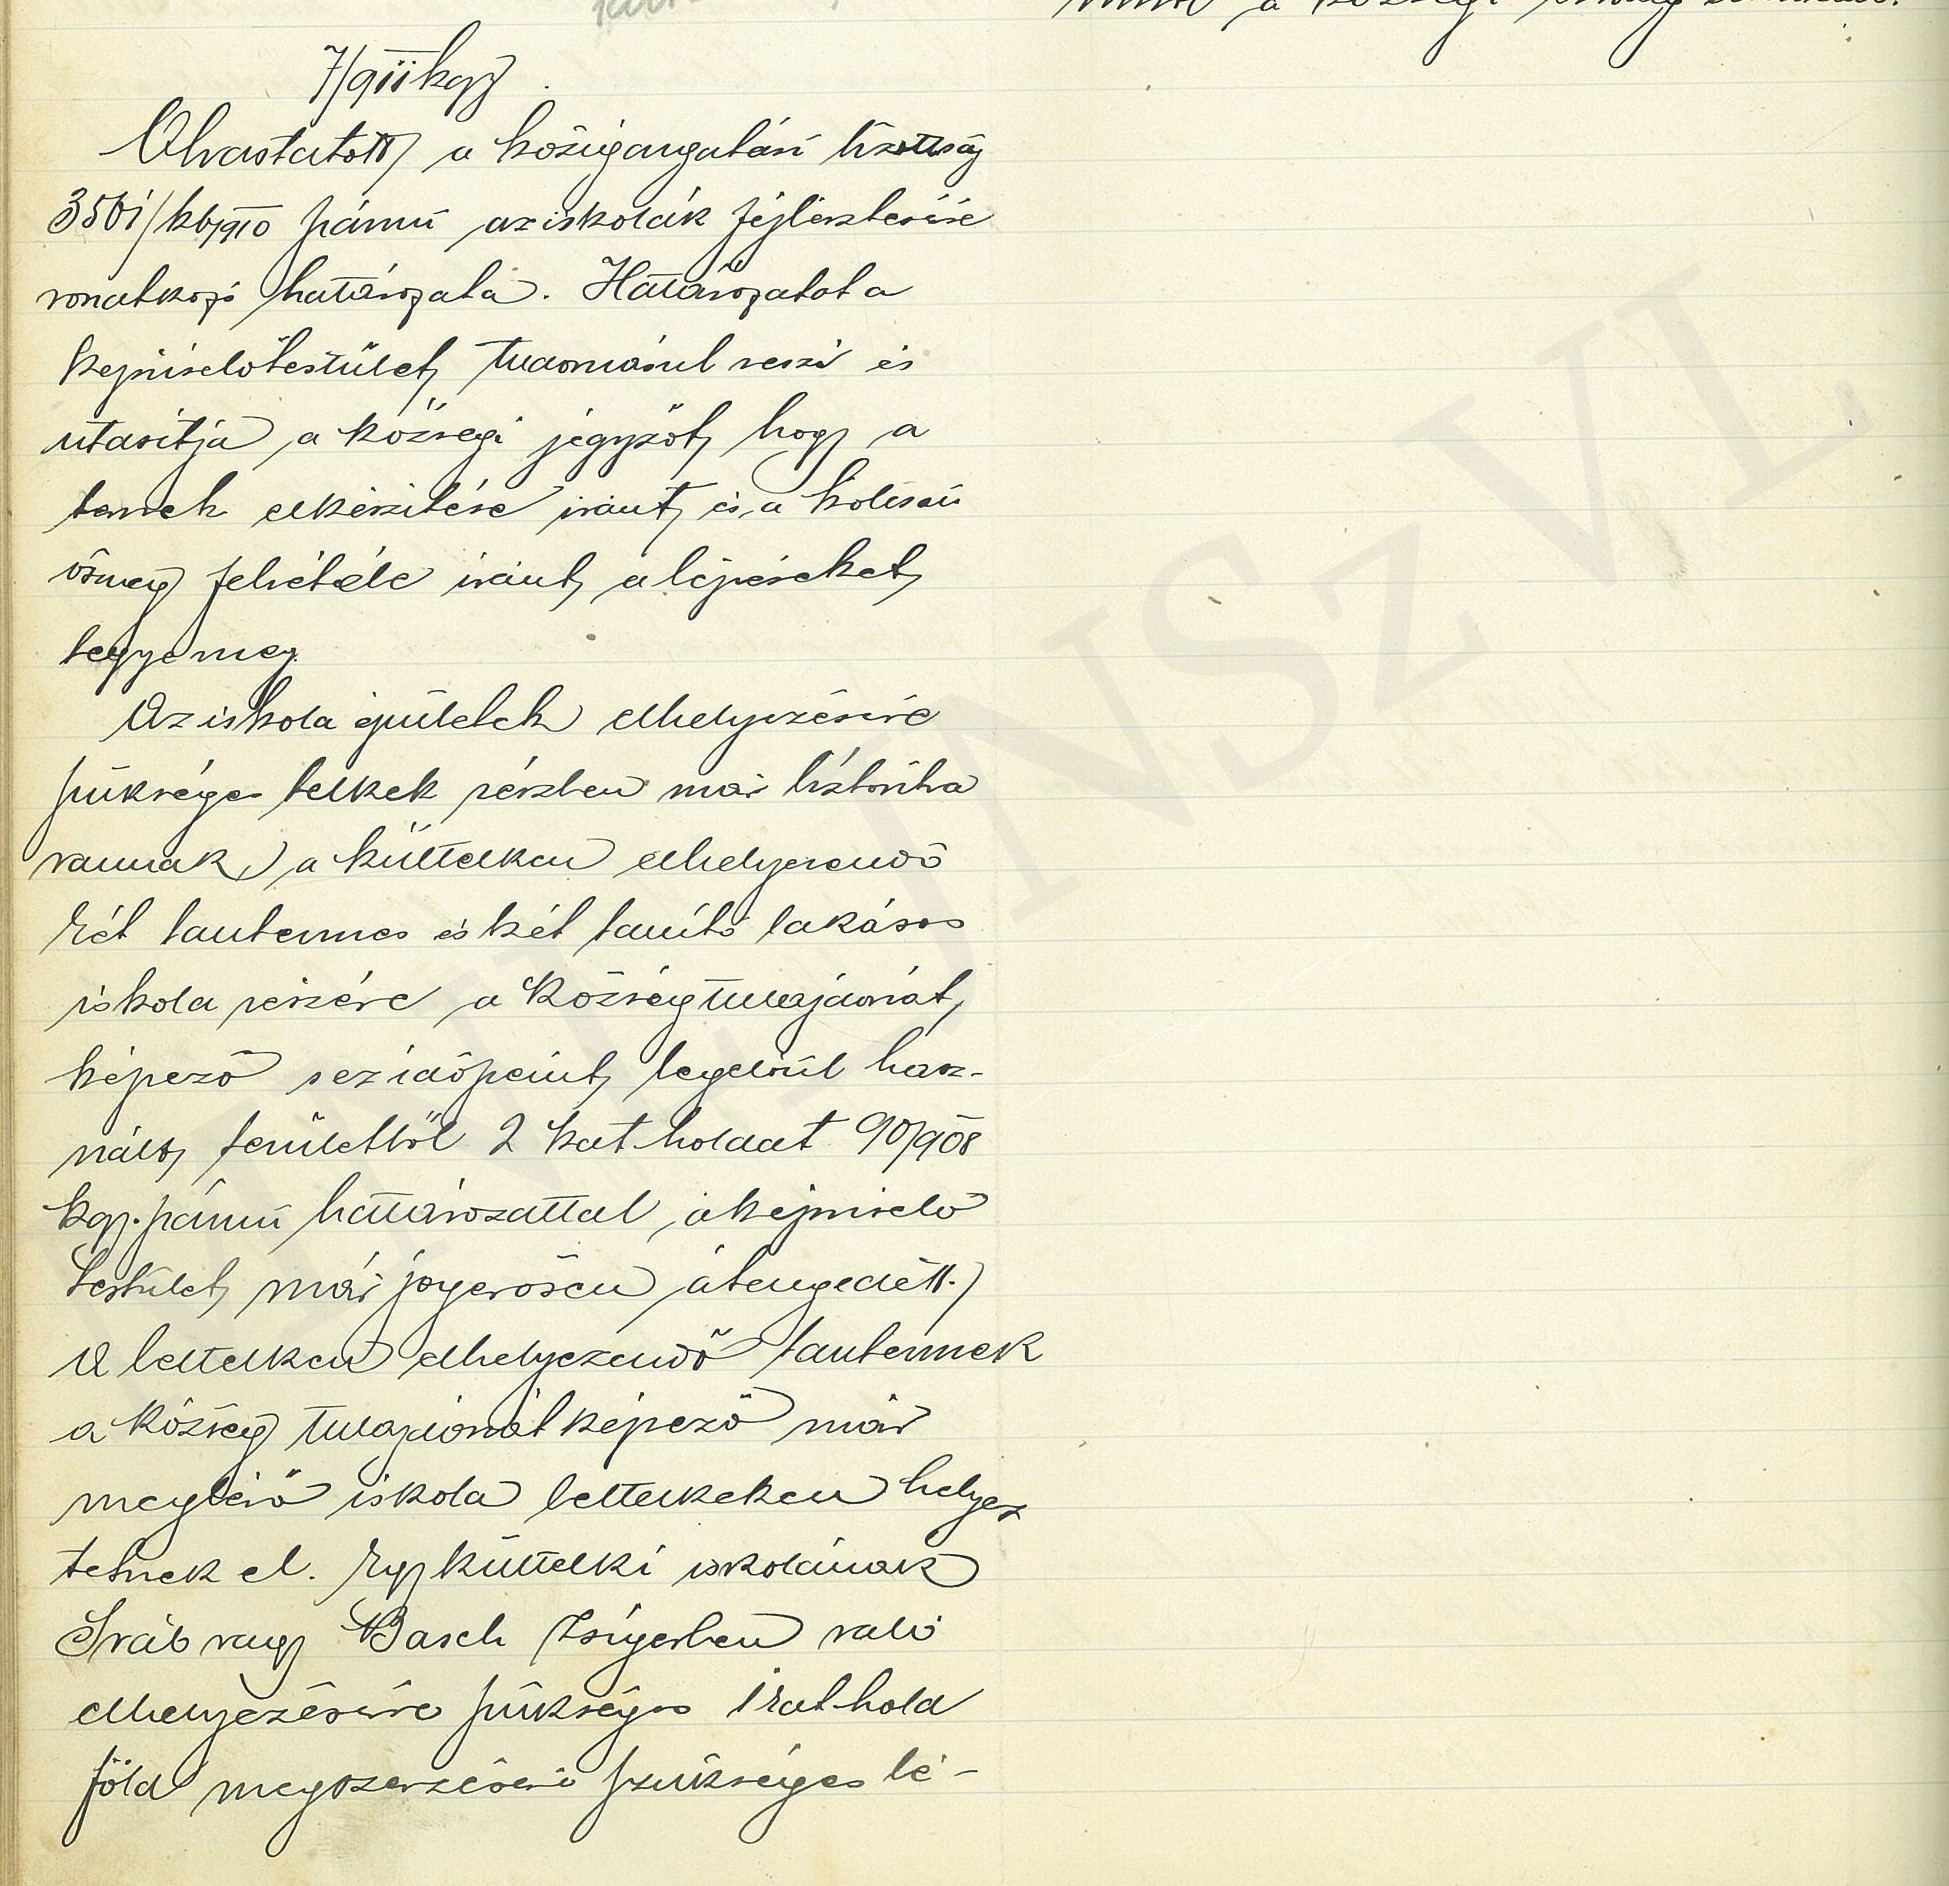 7/911 kgy
Olvastatott a közigazgatási bizottság
3561/kb/910 számú az iskolák fejlesztésére
vonatkozó határozata. Határozatot a
képviselőtestület tudomásul veszi és
utasítja a községi jegyzőt, hogy a
tervek elkészítése iránt, és a kölcsön
összeg felvétele iránt a lépéseket
tegye meg.
Az iskola épületek elhelyezésére
szükséges telkek részben már biztosítva
vannak, a kültelken elhelyezendő
két tantermes és két tanító lakásos
iskola részére a község tulajdonát
képező s ez időszerint legelőül hasz-
nált területből 2 kat hold at 90/908
kgy. számú határozattal a képviselő
testület már jogerősen átengedett.
A beltelken elhelyezendő tantermek
a község tulajdonát képező már
meglévő iskola beltelkeken helyez
tetnek el. Egy kültelki iskolának
Sváb vagy Basch tségerben való
elhelyezésére szükséges 1 kat hold
föld megszerzésére szükséges lé-
a községi
NSzVL